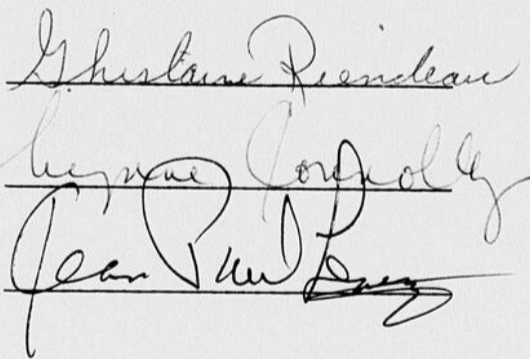 Ghislaine Riendeau
Lynne Connolly
Jean Paul